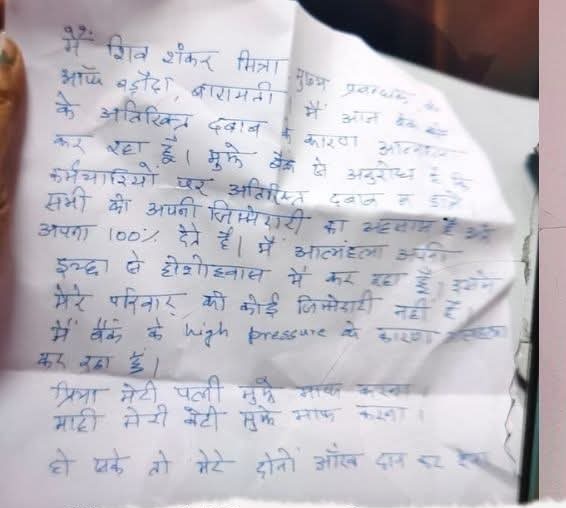 मैं शिव शंकर मित्रा मुख्य प्रबन्धक,
ऑफ बड़ौदा, बारामती में आज बैंक
के अतिरिक्त दबाव के कारण आत्महत्या
कर रहा हूँ। मुझे बैंक से अनुरोध है कि
कर्मचारियों पर अतिरिक्त दबाव न डाले
सभी को अपनी जिम्मेदारी का अहसास है और
अपना 100% देते हैं। मैं आत्महत्या अपनी
इच्छा से होशोहवास में कर रहा हूँ। इसमें
मेरे परिवार की कोई जिम्मेदारी नहीं है।
मैं बैंक के high pressure के कारण आत्महत्या
कर रहा हूँ।
प्रिया मेरी पत्नी मुझे माफ करना
माही मेरी बेटी मुझे माफ करना।
हो सके तो मेरे दोनों आँख दान कर देना